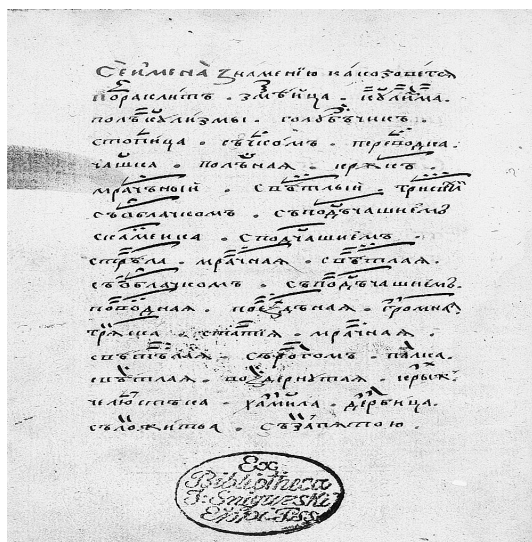 Сеи́мена̀ знамени́ю ка́козове́тсѧ
пораклитъ . змѣйца . кѹли́ма.
полъкꙋлизмы . голубъчикъ .
стопица . съчкомъ . переводка.
чашка . полънаѧ . крюкъ .
мрачъный . свѣтлый .
съѡблачкомъ . съподъчашиемъ
скамеица . сподчашиемъ .
стрѣла . мрачнаѧ . свѣтлаѧ .
съѡблачкомъ . съподъчашиемъ.
поводнаѧ . поѣздънаѧ . громнаѧ
трѧска . статїѧ . мрачнаѧ .
свѣтълаѧ . сърогомъ . палка.
свѣтлаѧ . воздернутаѧ . крыжъ.
челюстька . хамила . дербица.
съложитьа . съзапѧтою .
Ex
Bibliotheca
J. Snigurski